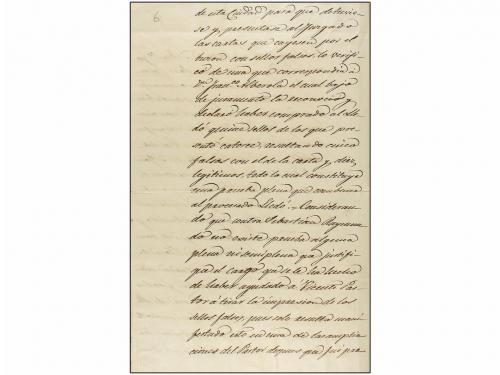 6
de esta Ciudad para que detuvie-
se y, presentase al Juzgado
las cartas que cayesen por el
buzon con sellos falsos, lo verifi-
có de una que correspondia á
Dn. Franco. Alberola el cual bajo
de juramento la reconoció y
declaró haber comprado al Lle-
dó quince sellos de los que pre-
sentó catorce, resultando cinco
falsos con el de la carta y diez
legitimos, todo lo cual constituye
una prueba plena que condena
al procesado Lledó.- Consideran-
do que contra Sebastian Raymun-
do no existe prueba alguna
plena ni semiplena qa. justifi-
que el cargo que se le ha hecho
de haber ayudado á Vicente Pas-
tor á tirar la impresion de los
sellos falsos, pues solo resulta mani-
festado esto en una de las amplia-
ciones del Pastor despues que fué pre-